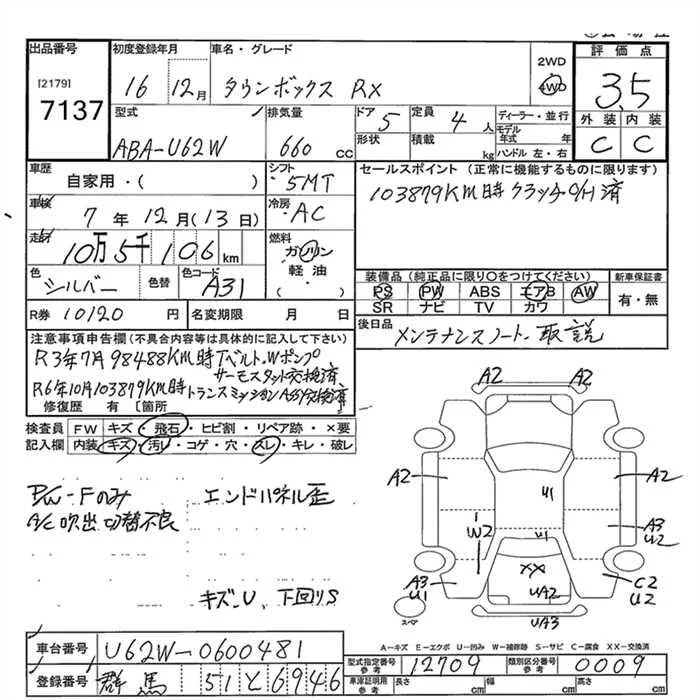 出品番号
[2179]
7137
初度登録年月
16 12月
車名・グレード
タウンボックス RX
2WD
4WD
評価点
3.5
外装 内装
C C
型式
ABA-U62W
排気量
660 cc
ドア 5
形状
定員 4人
積載 kg
ディーラー・並行
モデル年式 年
ハンドル 左・右
車歴
自家用・( )
シフト
5MT
セールスポイント (正常に機能するものに限ります)
103879KM時クラッチO/H済
車検
7年12月(13日)
冷房
・AC
走行
10万5千106km
燃料
ガソリン
軽油・
( )
色
シルバー
色替
色コード
A31
装備品(純正品に限り○をつけてください)
PS PW ABS エアB AW
SR ナビ TV カワ
新車保証書
有・無
R券 10120円
名変期限 月 日
後日品
メンテナンスノート・取説
注意事項申告欄(不具合内容等は具体的に記入して下さい)
R3年7月98488KM時Tベルト、Wポンプ
サーモスタット交換済
R6年10月103879KM時トランスミッションASSY交換済
修復歴 有 [箇所
検査員記入欄
FW キズ・飛石・ヒビ割・リペア跡・×要
内装 キズ・汚レ・コゲ・穴・スレ・キレ・破レ
P/W-Fのみ
エンドパネル歪
A/C吹出切替不良
キズ・U、下回りS
A2 A2
A2 A2
U1
A3
U2
W2
U1
XX
A3
U1
UA2
C2
U2
スペア
UA3
A-キズ E-エクボ U-凹み W-補修跡 S-サビ C-腐食 XX-交換済
車台番号
U62W-0600481
登録番号
群馬 51 と 6946
型式指定番号
参考
12709
類別区分番号
参考
0009
車庫証明用
参考
長さ cm
幅 cm
高さ cm